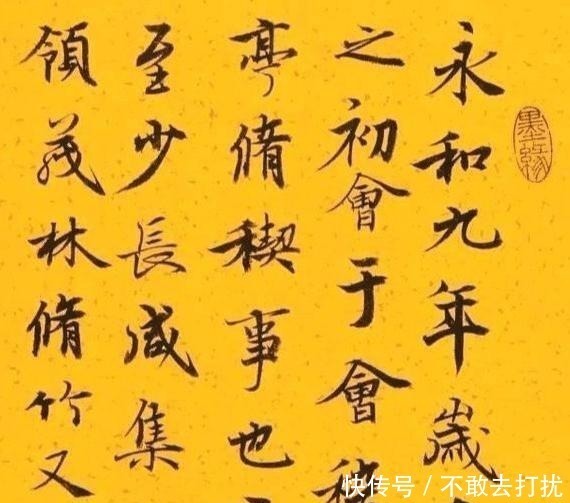 墨緣
永和九年歲
之初會于會
亭脩稧事也
至少長咸集
領茂林脩竹又
快传号 / 不敢去打扰